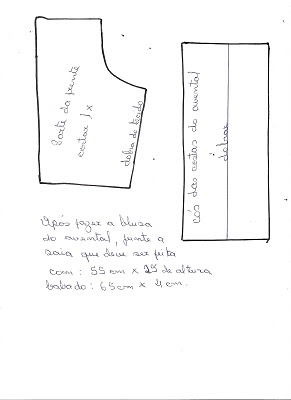 Parte da frente
cortar 1 x
dobra de tecido
cós das costas do avental
dobrar
Após fazer a blusa
do avental, junte a
saia que deve ser feita
com : 55 cm x 25 de altura
babado : 65 cm x 4 cm.